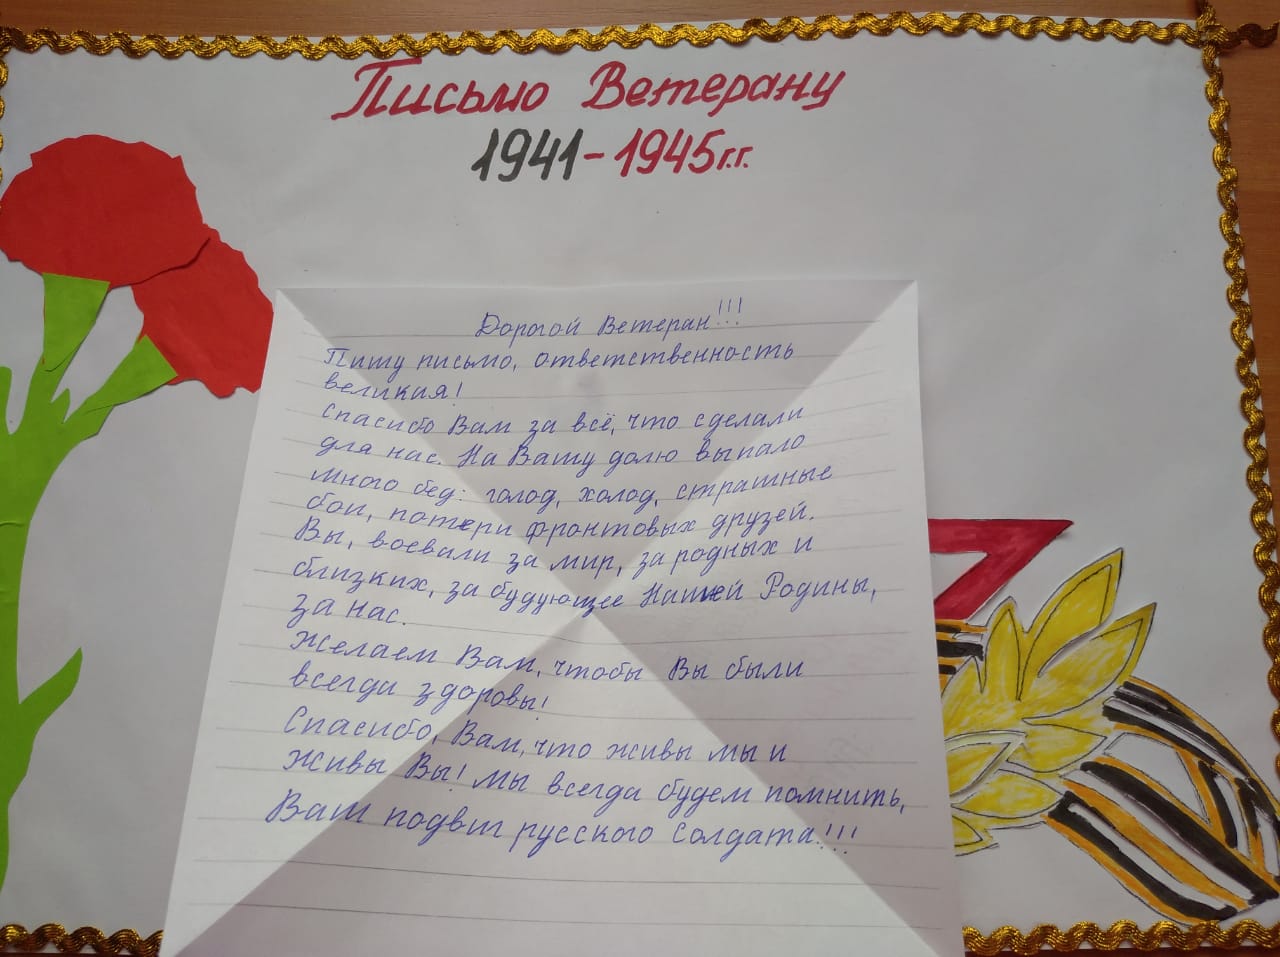 Письмо Ветерану
1941-1945г.г.
Дорогой Ветеран!!!
Пишу письмо, ответственность
великая!
Спасибо Вам за всё, что сделали
для нас. На Вашу долю выпало
много бед: голод, холод, страшные
бои, потери фронтовых друзей.
Вы, воевали за мир, за родных и
близких, за будующее Нашей Родины,
за нас.
Желаем Вам, чтобы Вы были
всегда здоровы!
Спасибо, Вам, что живы мы и
живы Вы! Мы всегда будем помнить,
Ваш подвиг русского солдата!!!